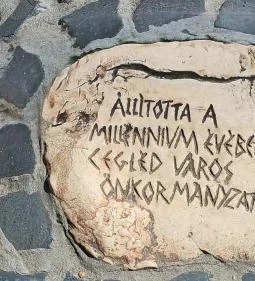 ÁLLÍTOTTA A
MILLENNIUM ÉVÉBE
CEGLÉD VÁROS
ÖNKORMÁNYZAT